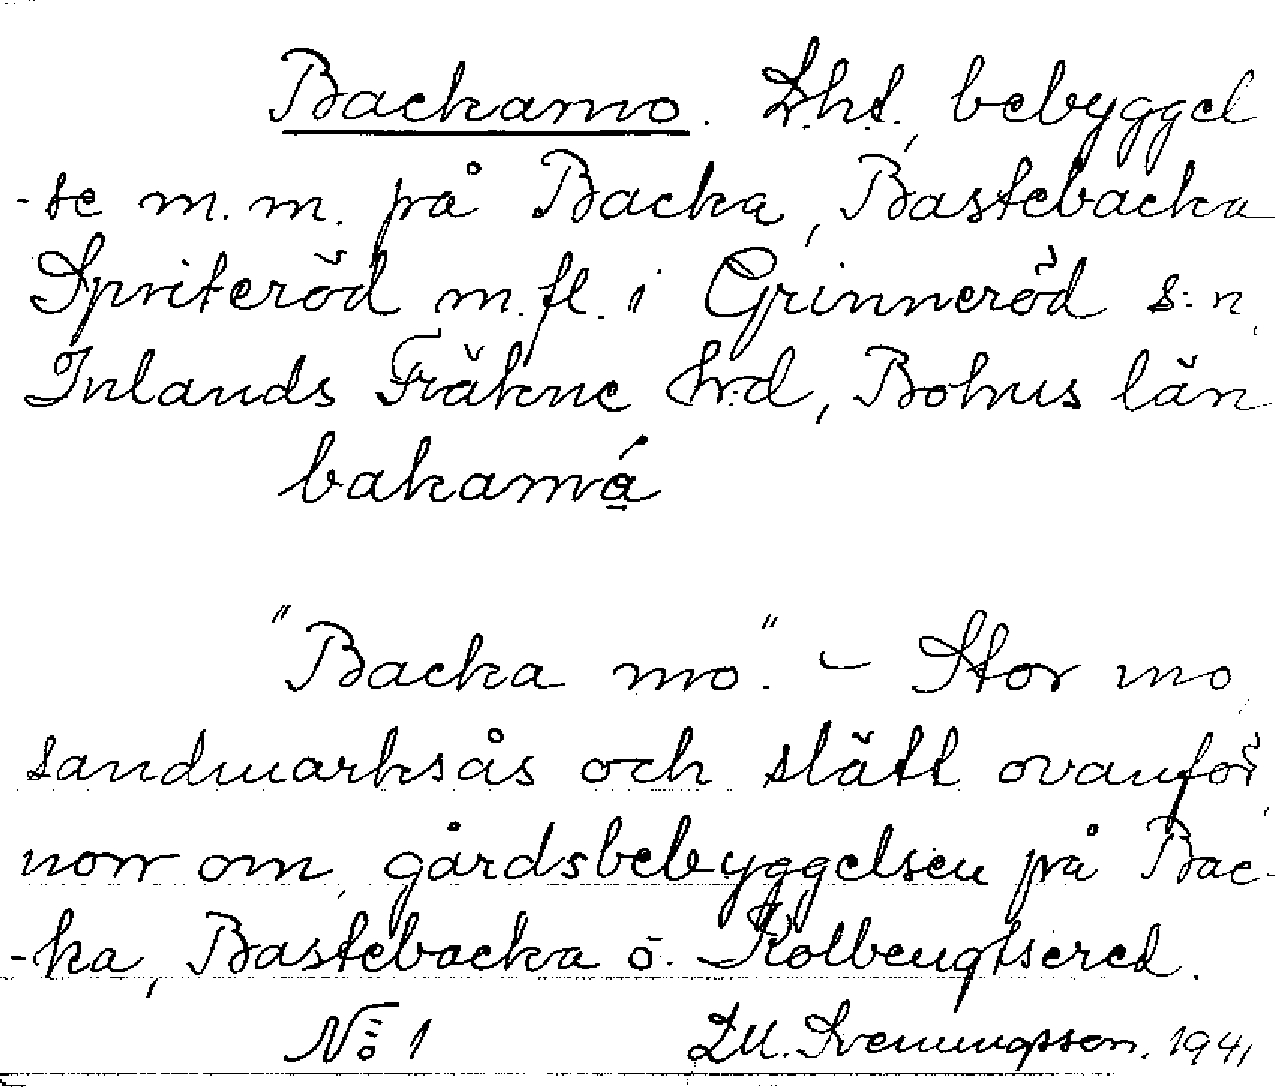 Backamo. L.h.t., bebyggel
-se m.m. på Backa, Bastebacka
Spriteröd m.fl. i Grinneröd s:n,
Inlands Fräkne h:d, Bohus län
bakamǻ̱
"Backa mo". – Stor mo,
sandmarksås och slätt ovanför,
norr om, gårdsbebyggelsen på Bac-
-ka, Bastebacka o. Kolbengtsered.
No 1 D.M. Svenungsson. 1941